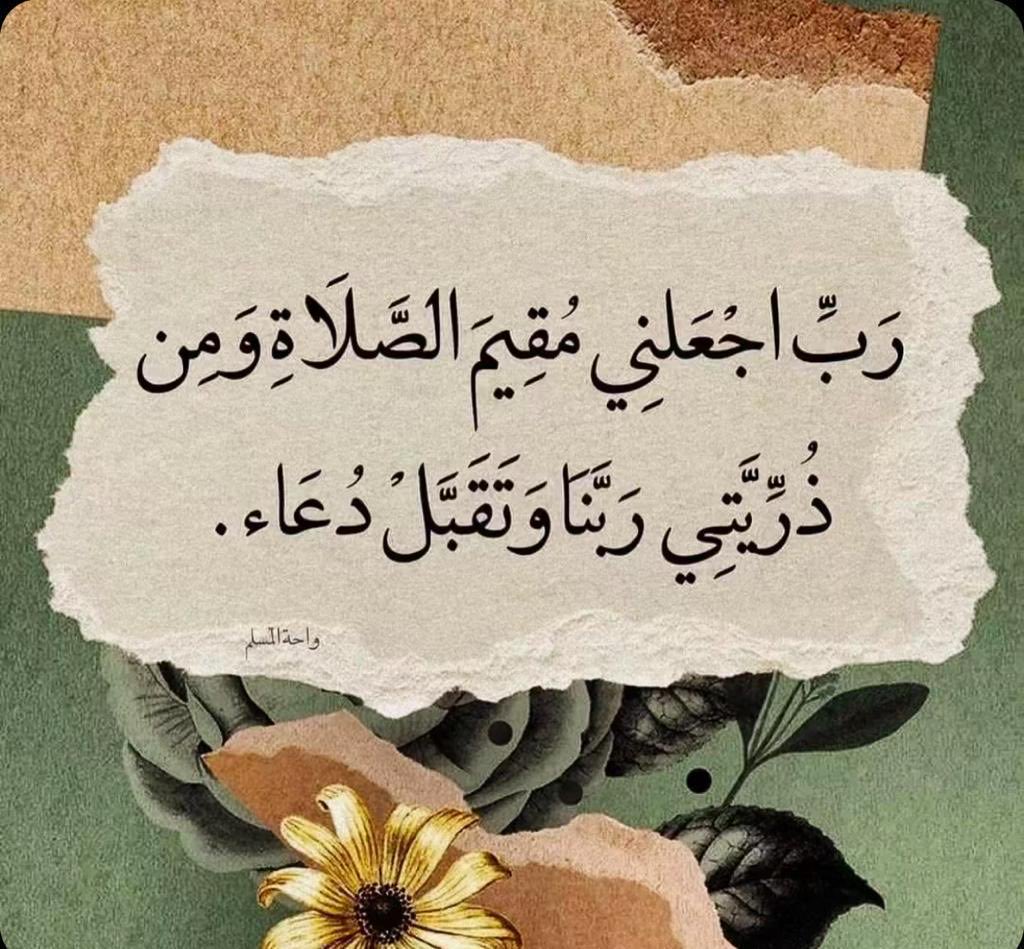 رَبِّ اجْعَلنِي مُقِيمَ الصَّلَاةِ وَمِن
ذُرِّيَّتِي رَبَّنَا وَتَقَبَّلْ دُعَاء.
واحة المسلم